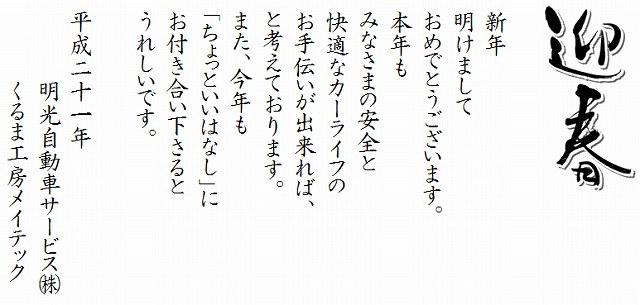 迎春
新年
明けまして
おめでとうございます。
本年も
みなさまの安全と
快適なカーライフの
お手伝いが出来れば、
と考えております。
また、今年も
「ちょっといいはなし」に
お付き合い下さると
うれしいです。
平成二十一年
明光自動車サービス㈱
くるま工房メイテック